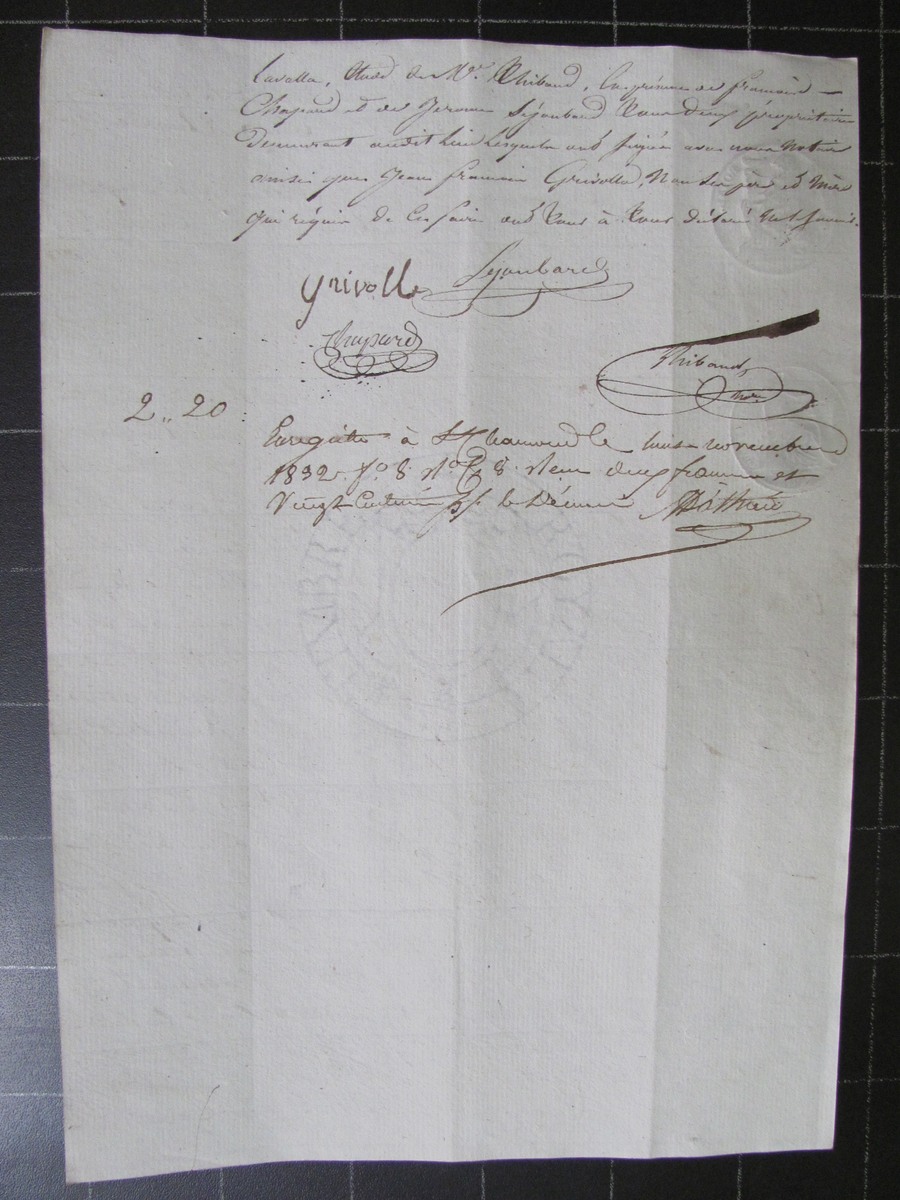 Lavalla, Etude de Me Thibaud, En présence de francois
Chapard et de Jerome Séjoubard Tous Deux propriétaires
Demeurant audit Lieu Lesquels ont signé avec nous Notaire
ainsi que Jean francois Grivolla, Non Les père et Mère
qui réquis de Ce faire ont Tous à Tous déclaré ne Savoir.
grivolla Sejoubard
Chapard
Thibaud, Nore
2 .. 20
Enregistré à St Chamond le huit novembre
1832 fo 8 Ro C 8 Reçu deux francs et
Vingt Centimes le Décime